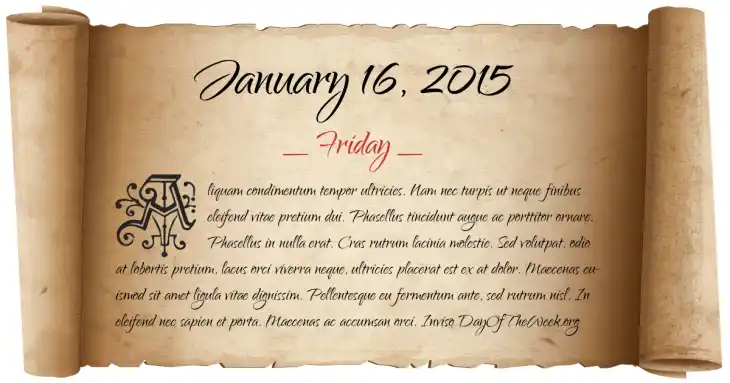 January 16, 2015
_ Friday _
Aliquam condimentum tempor ultricies. Nam nec turpis ut neque finibus
eleifend vitae pretium dui. Phasellus tincidunt augue ac porttitor ornare.
Phasellus in nulla erat. Cras rutrum lacinia molestie. Sed volutpat, odio
at lobortis pretium, lacus orci viverra neque, ultricies placerat est ex at dolor. Maecenas eu-
ismod sit amet ligula vitae dignissim. Pellentesque eu fermentum ante, sed rutrum nisl. In
eleifend nec sapien et porta. Maecenas ac accumsan orci. Invise DayOfTheWeek.org